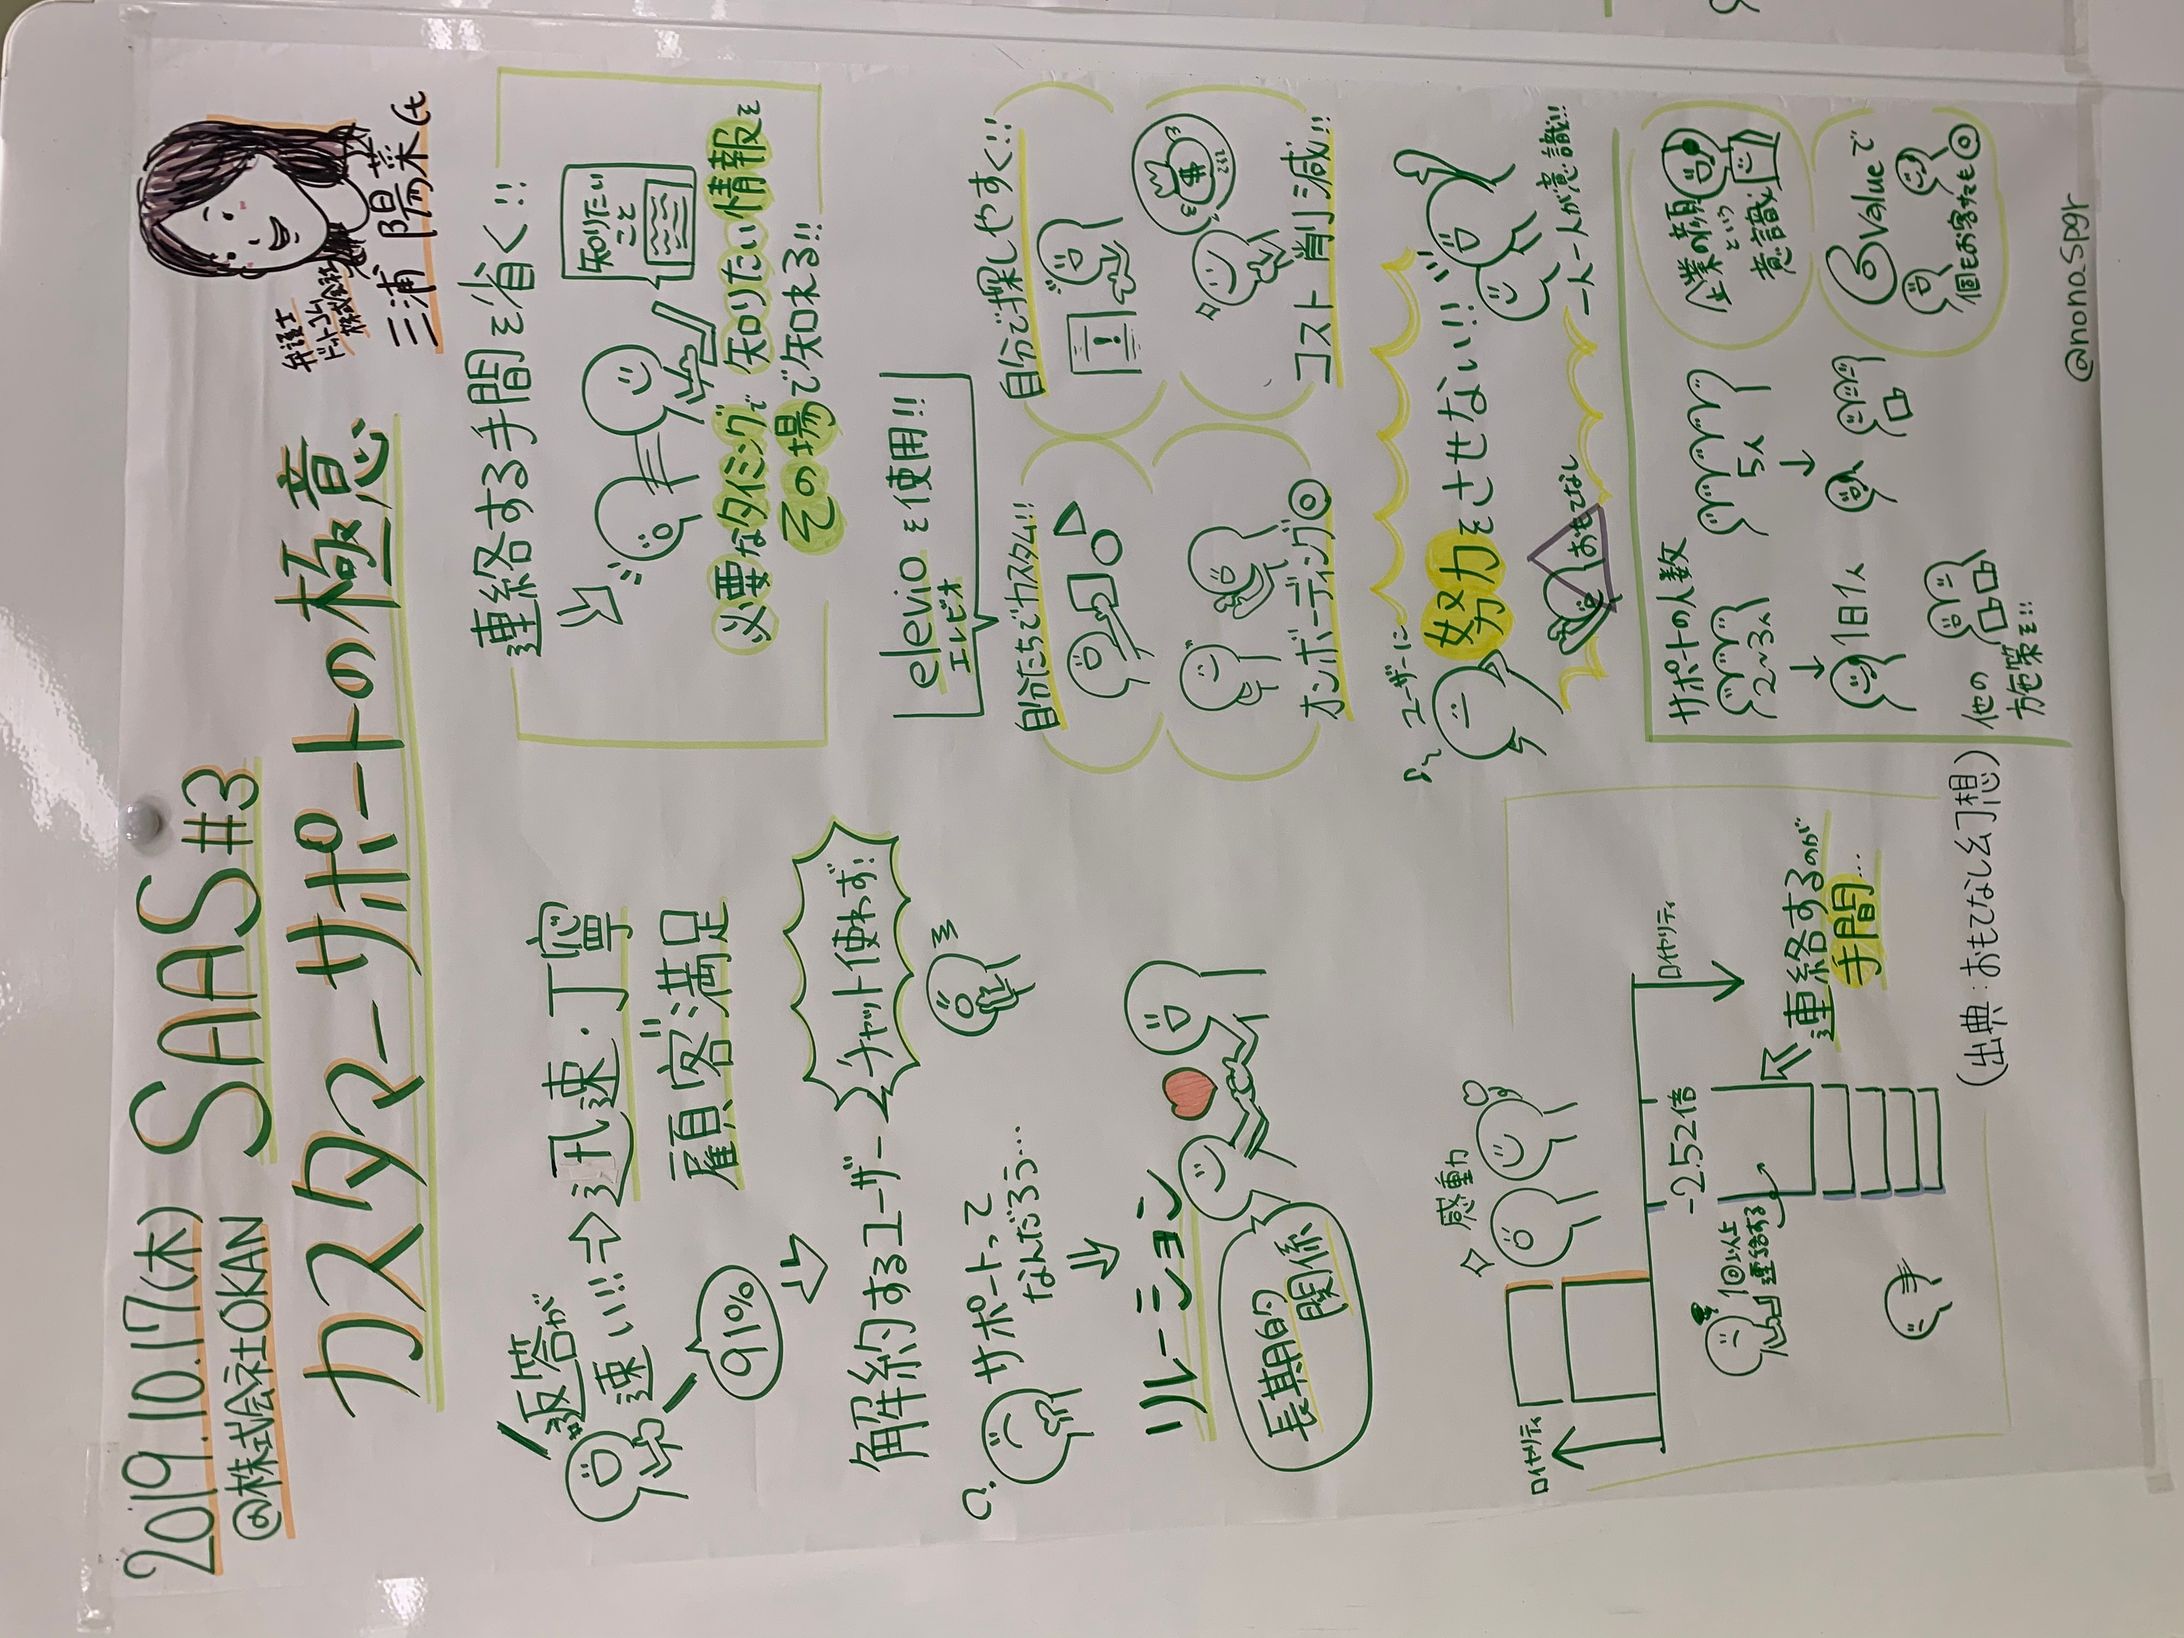 2019.10.17(木) SAAS#3
@株式会社OKAN
カスタマーサポートの極意
弁護士
ドットコム
株式会社
三浦 陽菜氏
返答が
速い!!
迅速・丁寧
顧客満足
91%
解約するユーザー
チャット使わず!!
サポートって
なんだろう…
リレーション
長期的
関係
ロイヤリティ
感動
-2.52倍
ロイヤリティ
1回以上
連絡する
連絡するのが
手間…
(出典:おもてなし幻想)
連絡する手間を省く!!
知りたい
こと
必要なタイミングで知りたい情報を
その場で知れる!!
elevioを使用!!
エレビオ
自分たちでカスタム!!
自分で探しやすく!!
オンボーディング◎
コスト削減!!
$
ユーザーに
努力をさせない!!
おもてなし
一人一人が意識!!
サポートの人数
2〜3人
5人
1日1人
他の
施策を!!
企業の顔
という
意識
6 Valueで
個もお客さんも◎
@nonaspgr